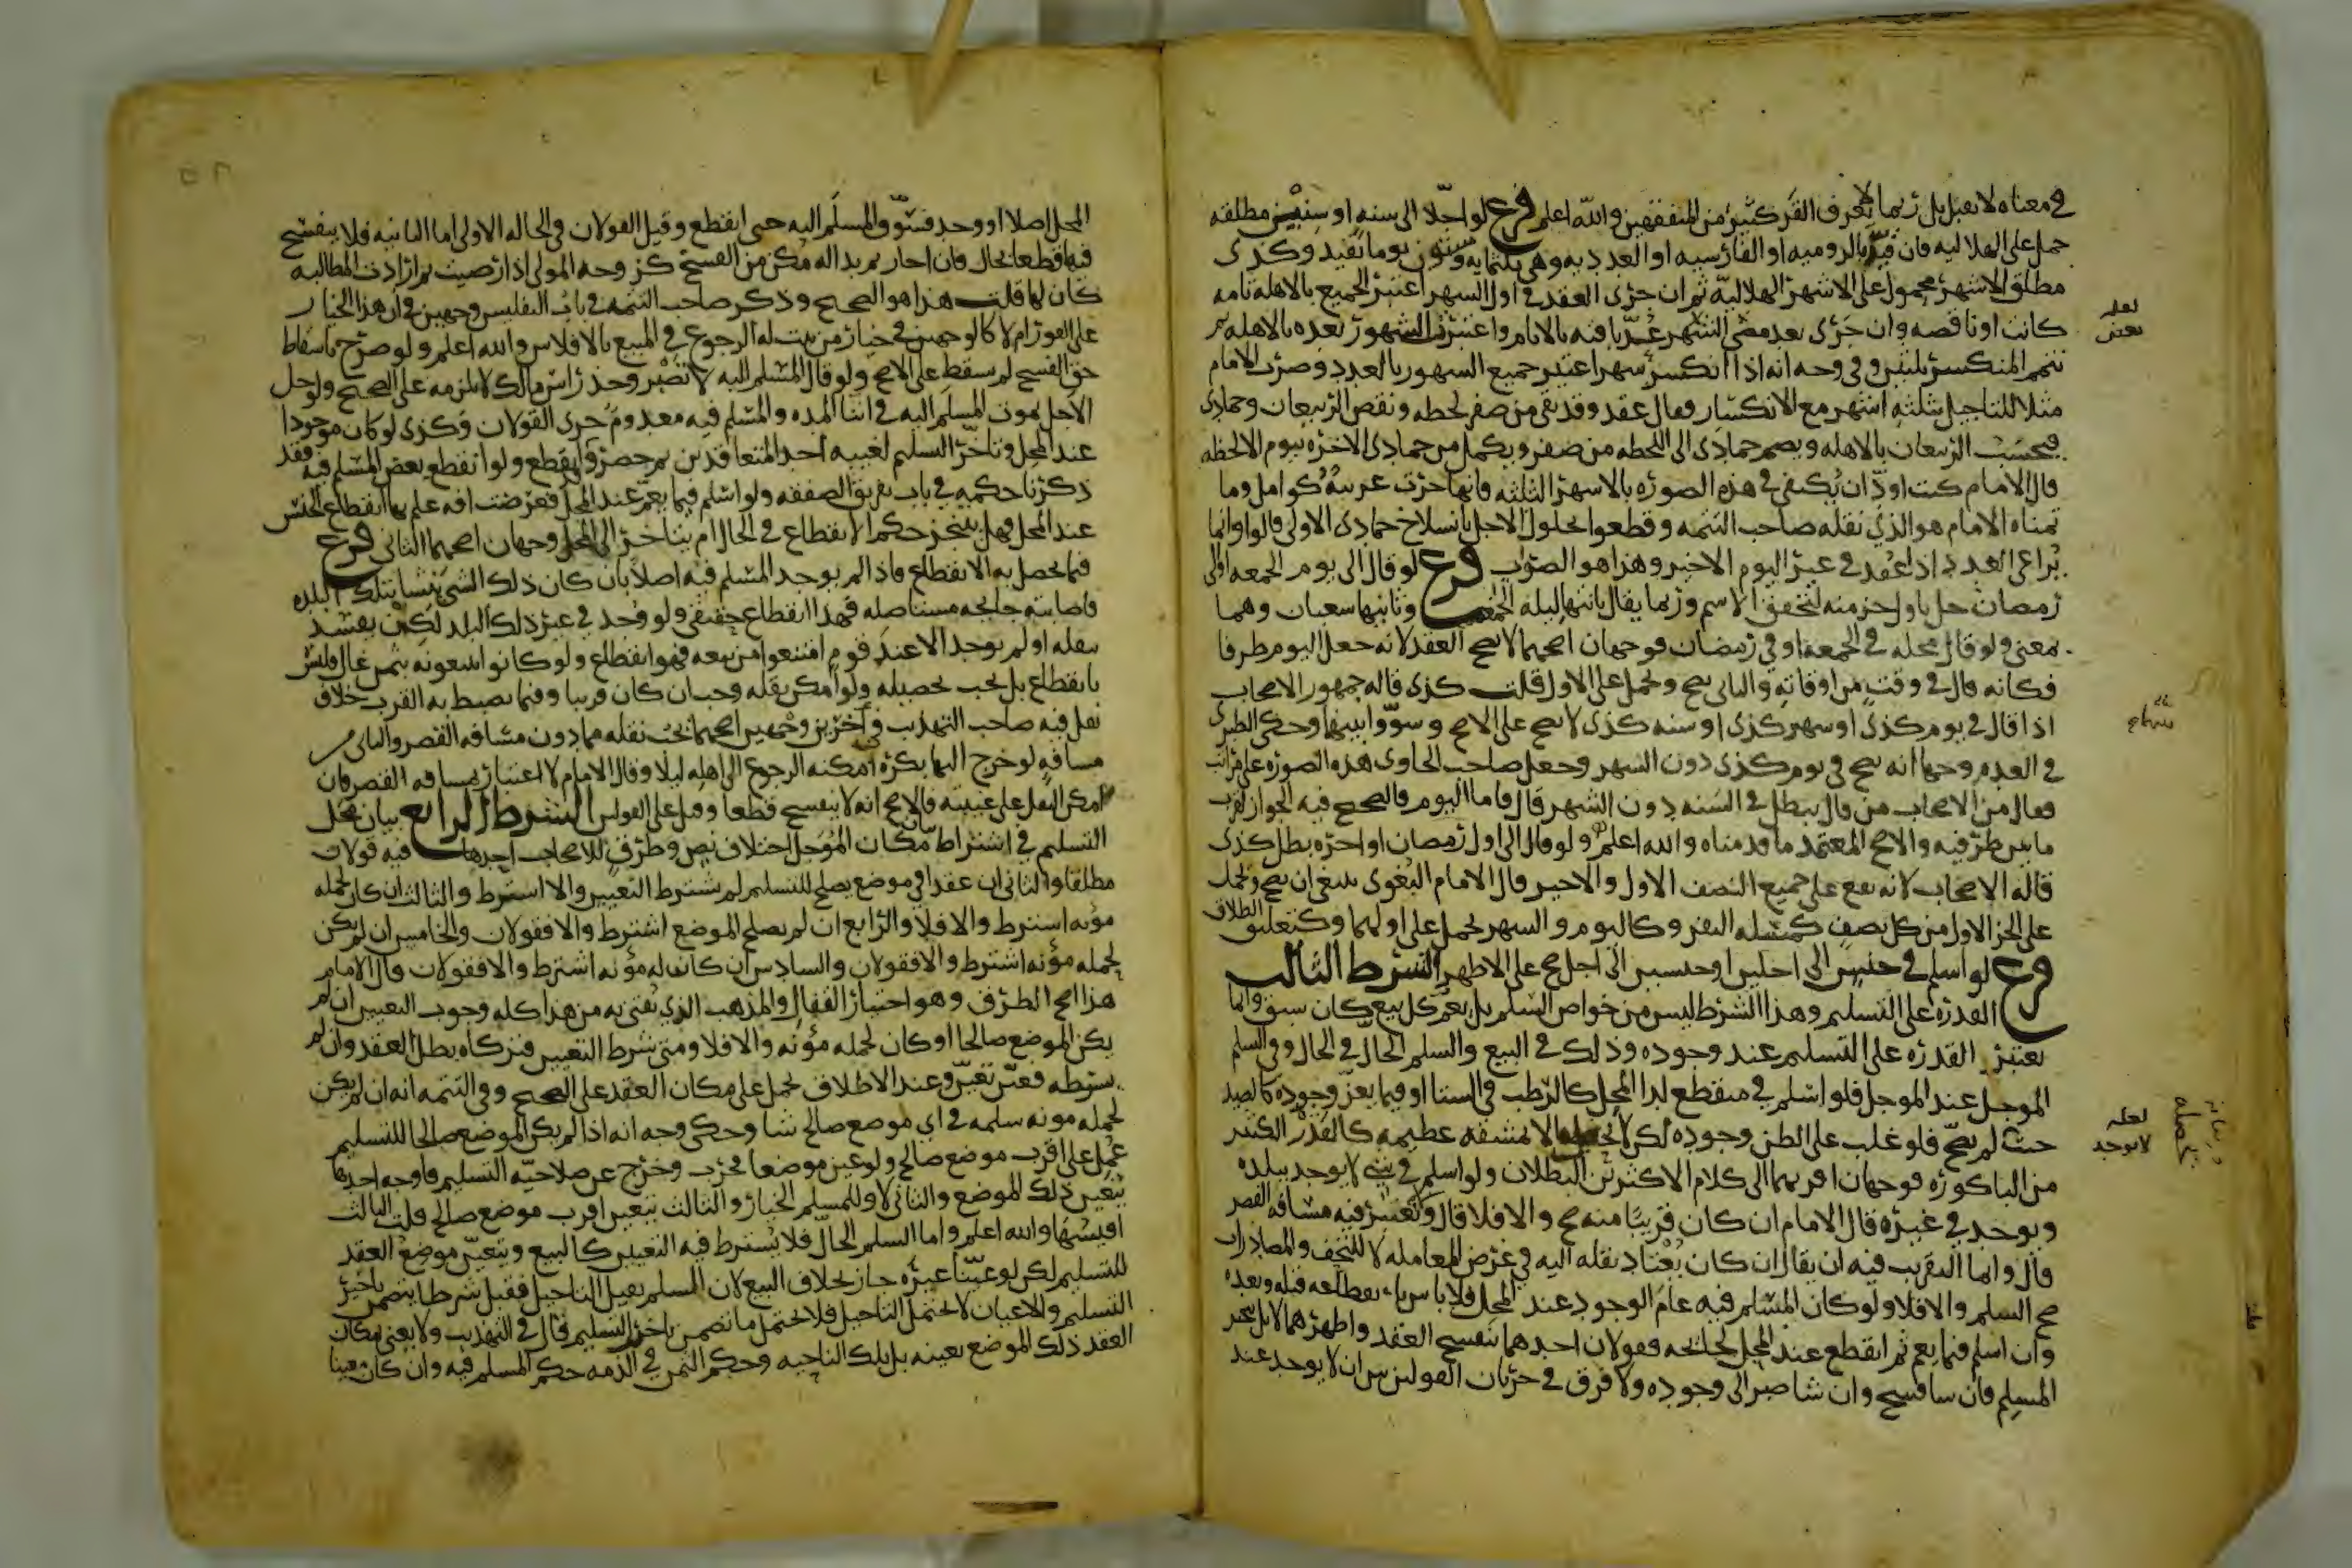 في معناه لا تقبل بل ربما لا يعرف القدر كثير من المتفقهين والله اعلم فرع لو اجلا الى سنه او سنين مطلقه
حمل على الهلاليه فان قيد بالروميه او الفارسيه او العدديه وهي ثلثمايه وستون يوما تقيد وكذى
مطلق الاشهر محمول على الاشهر الهلاليه ثم ان جرى العقد في اول الشهر اعتبر الجميع بالاهله تامه
كانت او ناقصه وان جرى بعد مضي الشهر عد باقيه بالايام واعتبرت الشهور بعده بالاهله ثم
تتمم المنكسر ثلثين وفي وجه انه اذا انكسر شهر اعتبر جميع الشهور بالعدد وضرب الامام
مثلا للتاجيل بثلثه اشهر مع الانكسار فقال عقد وقد بقي من صفر لحظه ونقص الربيعان وجمادى
فيحسب الربيعان بالاهله ويضم جمادى الى اللحظه من صفر ويكمل من جمادى الاخره بيوم الا لحظه
قال الامام كنت اود ان يكتفى في هذه الصوره بالاشهر الثلثه فانها جرت عربيه كوامل وما
تمناه الامام هو الذي نقله صاحب التتمه وقطعوا بحلول الاجل بانسلاخ جمادى الاولى قالوا وانما
يراعى العدد اذا عقد في غير اليوم الاخير وهذا هو الصواب فرع لو قال الى يوم الجمعه او الى
رمضان حل باول جزء منه لتحقق الاسم وربما يقال بانتها ليله الجمعه وثانيها شعبان وهما
بمعنى ولو قال محله في الجمعه او في رمضان فوجهان اصحهما لا يصح العقد لانه جعل اليوم ظرفا
فكانه قال في وقت من اوقاته والثاني يصح ويحمل على الاول قلت كذى قاله جمهور الاصحاب
اذا قال في يوم كذى او شهر كذى او سنه كذى لا يصح على الاصح وسووا بينها وحكى الطبري
في العده وجها انه يصح في يوم كذى دون الشهر وجعل صاحب الحاوي هذه الصوره على مراتب
فقال من الاصحاب من قال يبطل في السنه دون الشهر قال فاما اليوم فالصحيح فيه الجواز لقرب
ما بين طرفيه والاصح المعتمد ما قدمناه والله اعلم ولو قال الى اول رمضان او اخره بطل كذى
قاله الاصحاب لانه يقع على جميع النصف الاول والاخير وقال الامام البغوي ينبغي ان يصح ويحمل
على الجز الاول من كل نصف كمسله النفر وكاليوم والشهر يحمل على اولهما وكتعليق الطلاق
فرع لو اسلم في جنس الى اجلين او جنسين الى اجل صح على الاظهر الشرط الثالث
القدره على التسليم وهذا الشرط ليس من خواص السلم بل يعم كل بيع كما سبق وانما
تعتبر القدره على التسليم عند وجوبه وذلك في البيع والسلم الحال في الحال وفي السلم
الموجل عند الموجل فلو اسلم في منقطع لدى المحل كالرطب في الشتا او فيما يعز وجوده كالصيد
حيث لم يصح فلو غلب على الظن وجوده لكن لا الا بمشقه عظيمه كالقدر الكثير
من الباكوره فوجهان اقربهما الى كلام الاكثرين البطلان ولو اسلم في شي لا يوجد ببلده
ويوجد في غيره قال الامام ان كان قريبا منه صح والا فلا قال ولا تعتبر فيه مسافه القصر
قال وانما التقريب فيه ان يقال ان كان يعتاد نقله اليه في غرض المعامله لا للتحف والمصادرات
صح السلم والا فلا ولو كان المسلم فيه عام الوجود عند المحل فلا باس بانقطاعه قبله وبعده
وان اسلم فيما يعم ثم انقطع عند المحل لجائحه فقولان احدهما ينفسخ العقد واظهرهما لا بل يتخير
المسلم فان شا فسخ وان شا صبر الى وجوده ولا فرق في جريان القولين بين ان لا يوجد عند
لعله
بعض
لعله
لا يوجد
المحل اصلا او وجد فسوف المسلم اليه حتى انقطع وقيل القولان في الحاله الاولى اما الثانيه فلا ينفسخ
فيها قطعا بحال فان اجاز ثم بدا له مكن من الفسخ كزوجه المولي اذا رضيت ثم ارادت المطالبه
كان لها قلت هذا هو الصحيح وذكر صاحب التتمه في باب التفليس وجهين في ان هذا الخيار
على الفور ام لا كالوجهين في خيار من ثبت له الرجوع في المبيع بالافلاس والله اعلم ولو صرح باسقاط
حق الفسخ لم يسقط على الاصح ولو قال المسلم اليه لا تصبر وخذ راس مالك لا يلزمه على الصحيح ولو حل
الاجل بموت المسلم اليه في اثنا المده والمسلم فيه معدوم جرى القولان وكذى لو كان موجودا
عند المحل وتاخر التسليم لغيبه احد المتعاقدين ثم حضر وانقطع ولو انقطع بعض المسلم فيه فقد
ذكرنا حكمه في باب تفريق الصفقه ولو اسلم فيما يعم عند المحل فعرضت افه علم بها انقطاع الجنس
عند المحل فهل يتنجز حكم الانقطاع في الحال ام يتاخر الى المحل وجهان اصحهما الثاني فرع
فيما يحصل به الانقطاع فاذا لم يوجد المسلم فيه اصلا بان كان ذلك الشي ينشا بتلك البلده
فاصابته جائحه مستاصله فهذا انقطاع حقيقي ولو وجد في غير ذلك البلد لكن يفسد
بنقله او لم يوجد الا عند قوم امتنعوا من بيعه فهو انقطاع ولو كانوا يبيعونه بثمن غال فليس
بانقطاع بل يجب تحصيله ولو امكن نقله وجب ان كان قريبا وفيما يضبط به القرب خلاف
نقل فيه صاحب التهذيب في اخرين وجهين اصحهما يجب نقله مما دون مسافه القصر والثاني من
مسافه لو خرج اليها بكره امكنه الرجوع الى اهله ليلا وقال الامام لا اعتبار بمسافه القصر فان
امكن النقل على عسر فالاصح انه لا ينفسخ قطعا وقيل على القولين الشرط الرابع بيان محل
التسليم في اشتراط بيان مكان الموجل اختلاف نص وطرق للاصحاب احدها فيه قولان
مطلقا والثاني ان عقدا في موضع يصلح للتسليم لم يشترط التعيين والا اشترط والثالث ان كان لحمله
مؤنه اشترط والا فلا والرابع ان لم يصلح الموضع اشترط والا فقولان والخامس ان لم يكن
لحمله مؤنه اشترط والا فقولان والسادس ان كان له مؤنه اشترط والا فقولان قال الامام
هذا اصح الطرق وهو اختيار القفال والمذهب الذي يفتى به من هذا كله وجوب التعيين ان لم
يكن الموضع صالحا او كان لحمله مؤنه والا فلا ومتى شرط التعيين فتركاه بطل العقد وان لم
يشترطه فعين تعين وعند الاطلاق يحمل على مكان العقد على الصحيح وفي التتمه انه ان لم يكن
لحمله مونه سلمه في اي موضع صالح شا وحكى وجه انه اذا لم يكن الموضع صالحا للتسليم
حمل على اقرب موضع صالح ولو عين موضعا فخرب وخرج عن صلاحيه التسليم فاوجه احدها
يتعين ذلك الموضع والثاني لا وللمسلم الخيار والثالث يتعين اقرب موضع صالح قلت الثالث
اقيسها والله اعلم واما السلم الحال فلا يشترط فيه التعيين كالبيع ويتعين موضع العقد
للتسليم لكن لو عينا غيره جاز بخلاف البيع لان السلم يقبل التاجيل فقبل شرطا يتضمن تاخير
التسليم والاعيان لا تحتمل التاجيل فلا تحتمل ما تضمن تاخير التسليم قال في التهذيب ولا يعنى بمكان
العقد ذلك الموضع بعينه بل تلك الناحيه وحكم الثمن في الذمه حكم المسلم فيه وان كان معينا